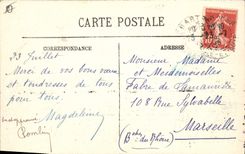 CARTE POSTALE
CORRESPONDANCE
ADRESSE
23 Juillet
Merci de vos bons vœux
et tendresses de tous
pour tous.
Magdeleine
Monsieur, Madame
et Mesdemoiselles
Fabre de
108 Rue Sylvabelle
Marseille
(Bches du Rhône)